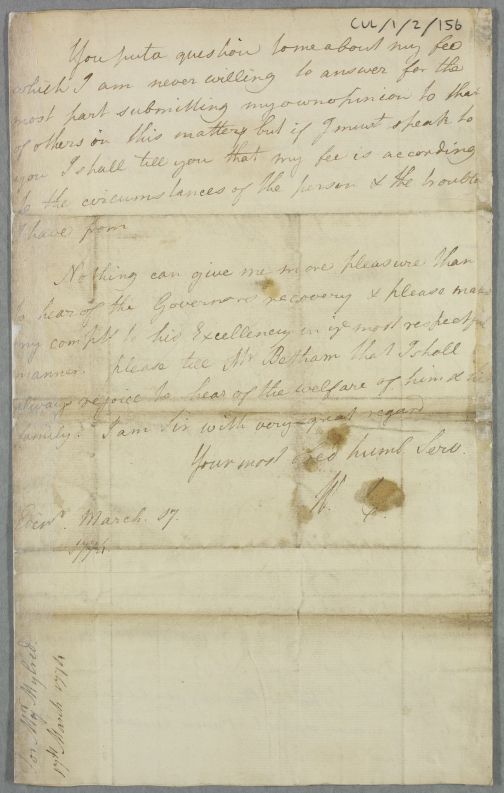 CUL/1/2/156
You put a question to me about my fee
which I am never willing to answer for the
most part submitting my own opinion to that
of others in this matter, but if I must speak to
you I shall till you that my fee is according
to the circumstances of the person & the trouble
I have from
Nothing can give me more pleasure than
to hear of the Governors recovery & please make
my complts to his Excellency in ye most respectful
manner. please till Mr Betham that I shall
always rejoice to hear of the welfare of him & his
family. I am Sir with very great regard
Your most obed humb Serv.
W. C.
Edinr. March. 17.
1774
For Mrs
17th March 1774